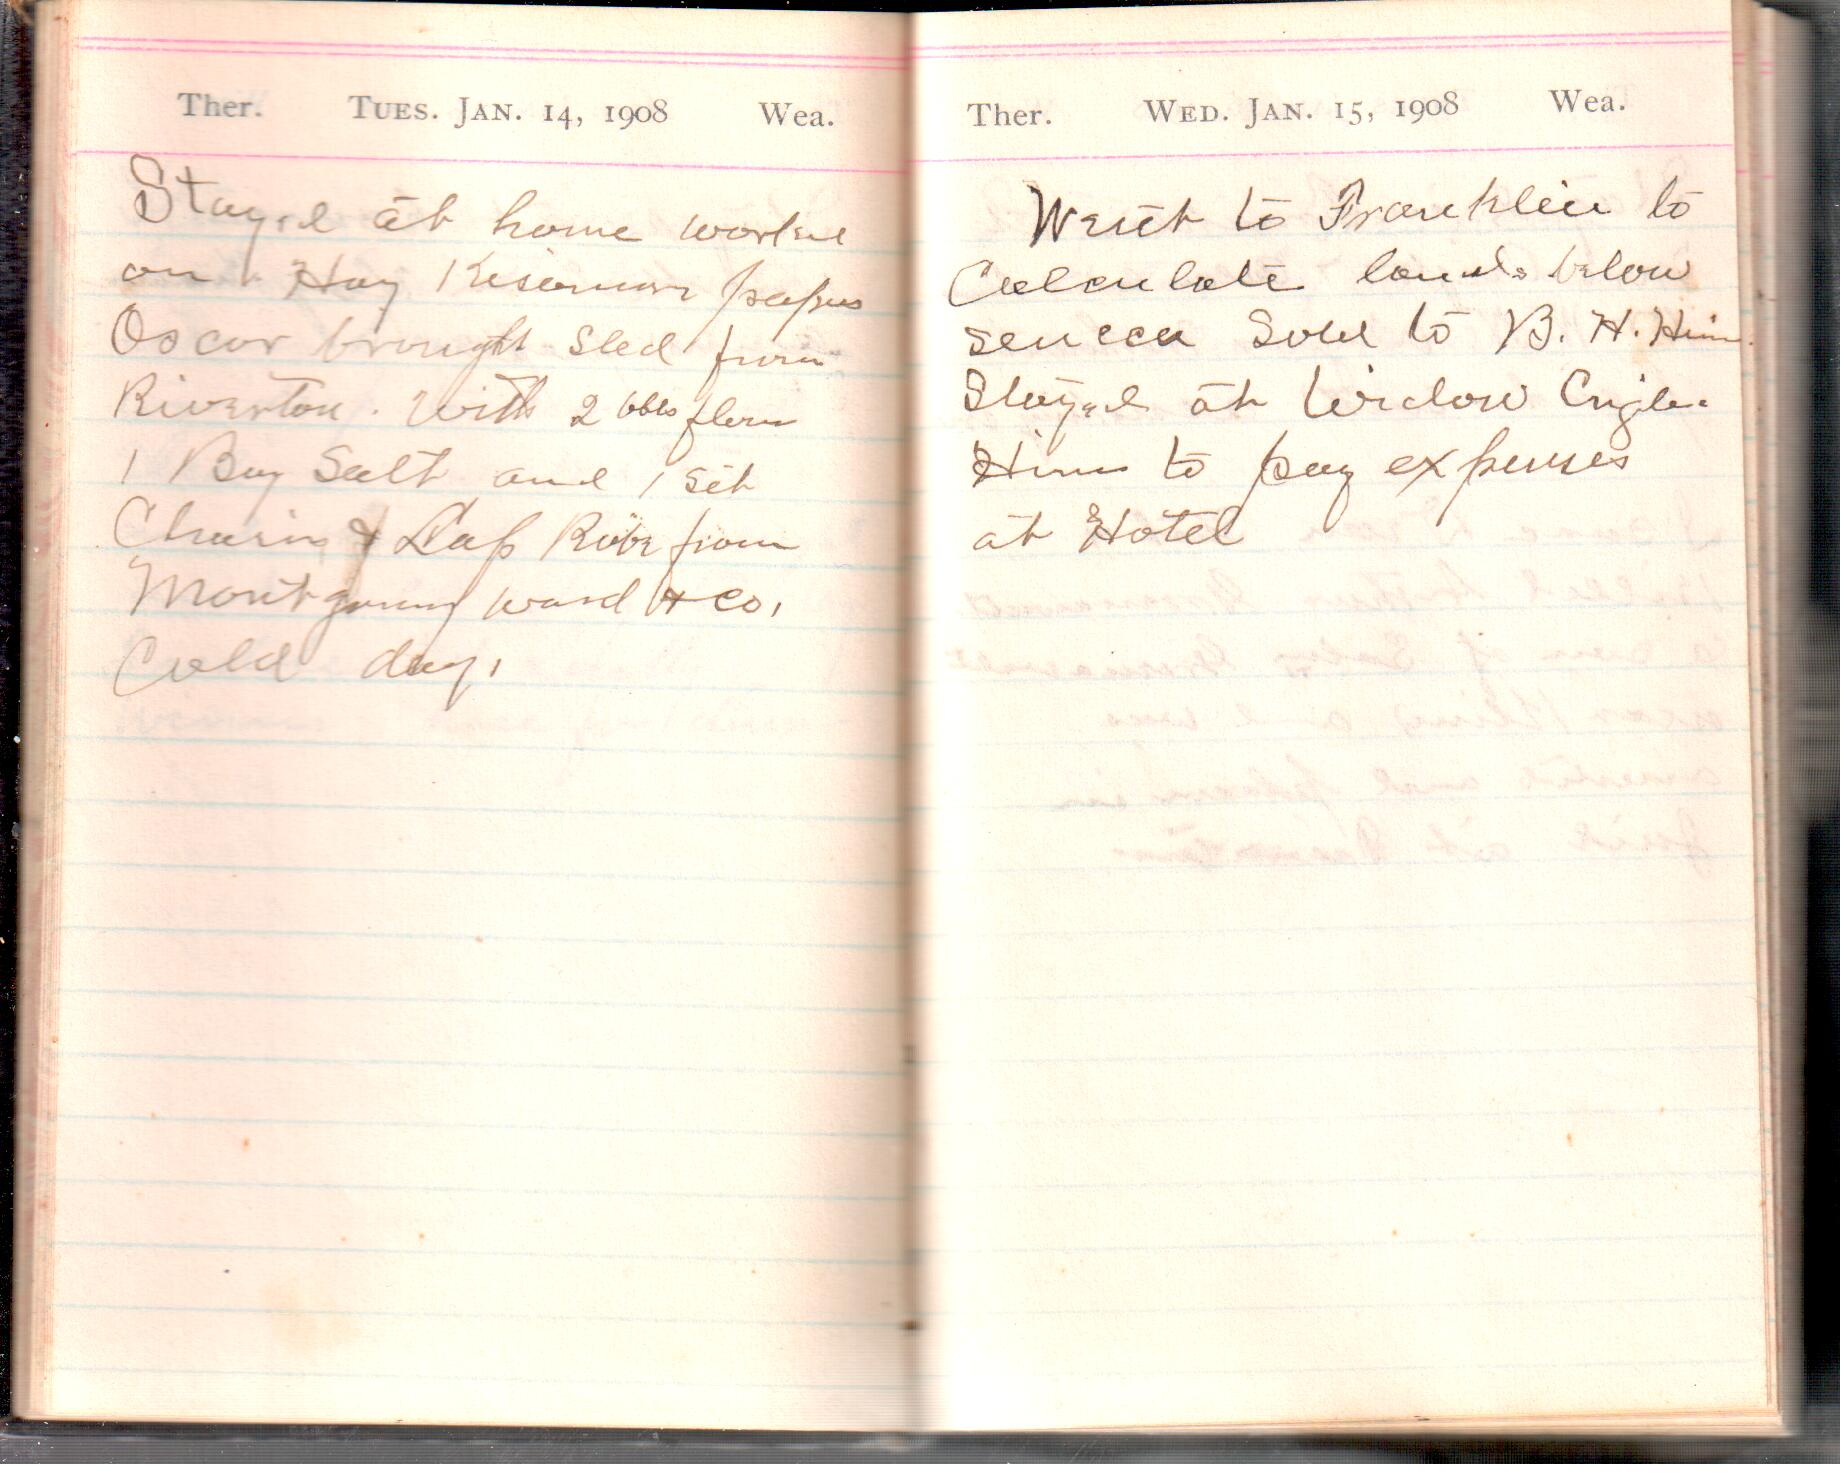 Ther. TUES. JAN. 14, 1908 Wea.
Stayed at home worked
on Hay papers
Oscar brought sled from
Riverton. With 2 bbls flour
1 Bag Salt and 1 set
Chains & Lap Robe from
Montgomery Ward & Co,
Cold day,
Ther. WED. JAN. 15, 1908 Wea.
Went to Franklin to
Calculate lands below
seneca Sold to B. H. Hiner
Stayed at Widow
Hiner to pay expenses
at Hotel